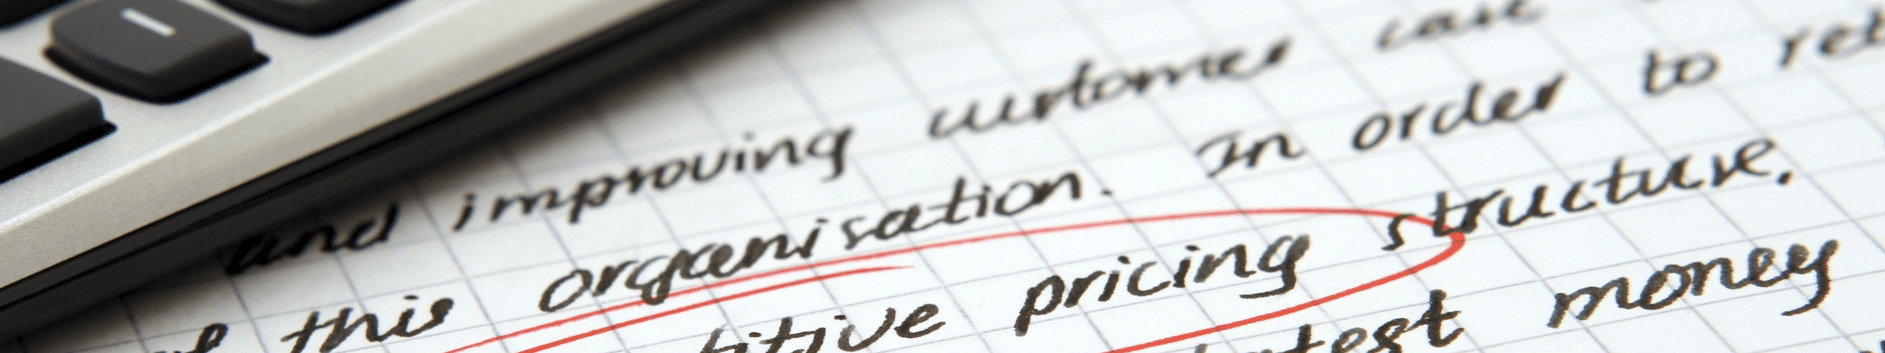 and improving customer care
this organisation. In order to
pricing structure.
money